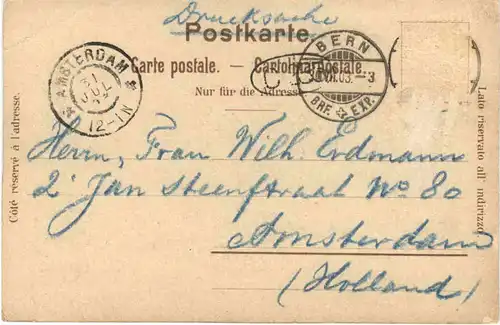 Drucksache
Postkarte.
Carte postale. — Cartolina postale.
Nur für die Adresse
AMSTERDAM
31
JUL
12-1N
BERN
VII.03.-3
BRF. EXP.
Côté réservé à l'adresse.
Lato riservato all' indirizzo
Herrn, Frau Wilh. Erdmann
2e Jan Steenstraat No 80
Amsterdam
(Holland)